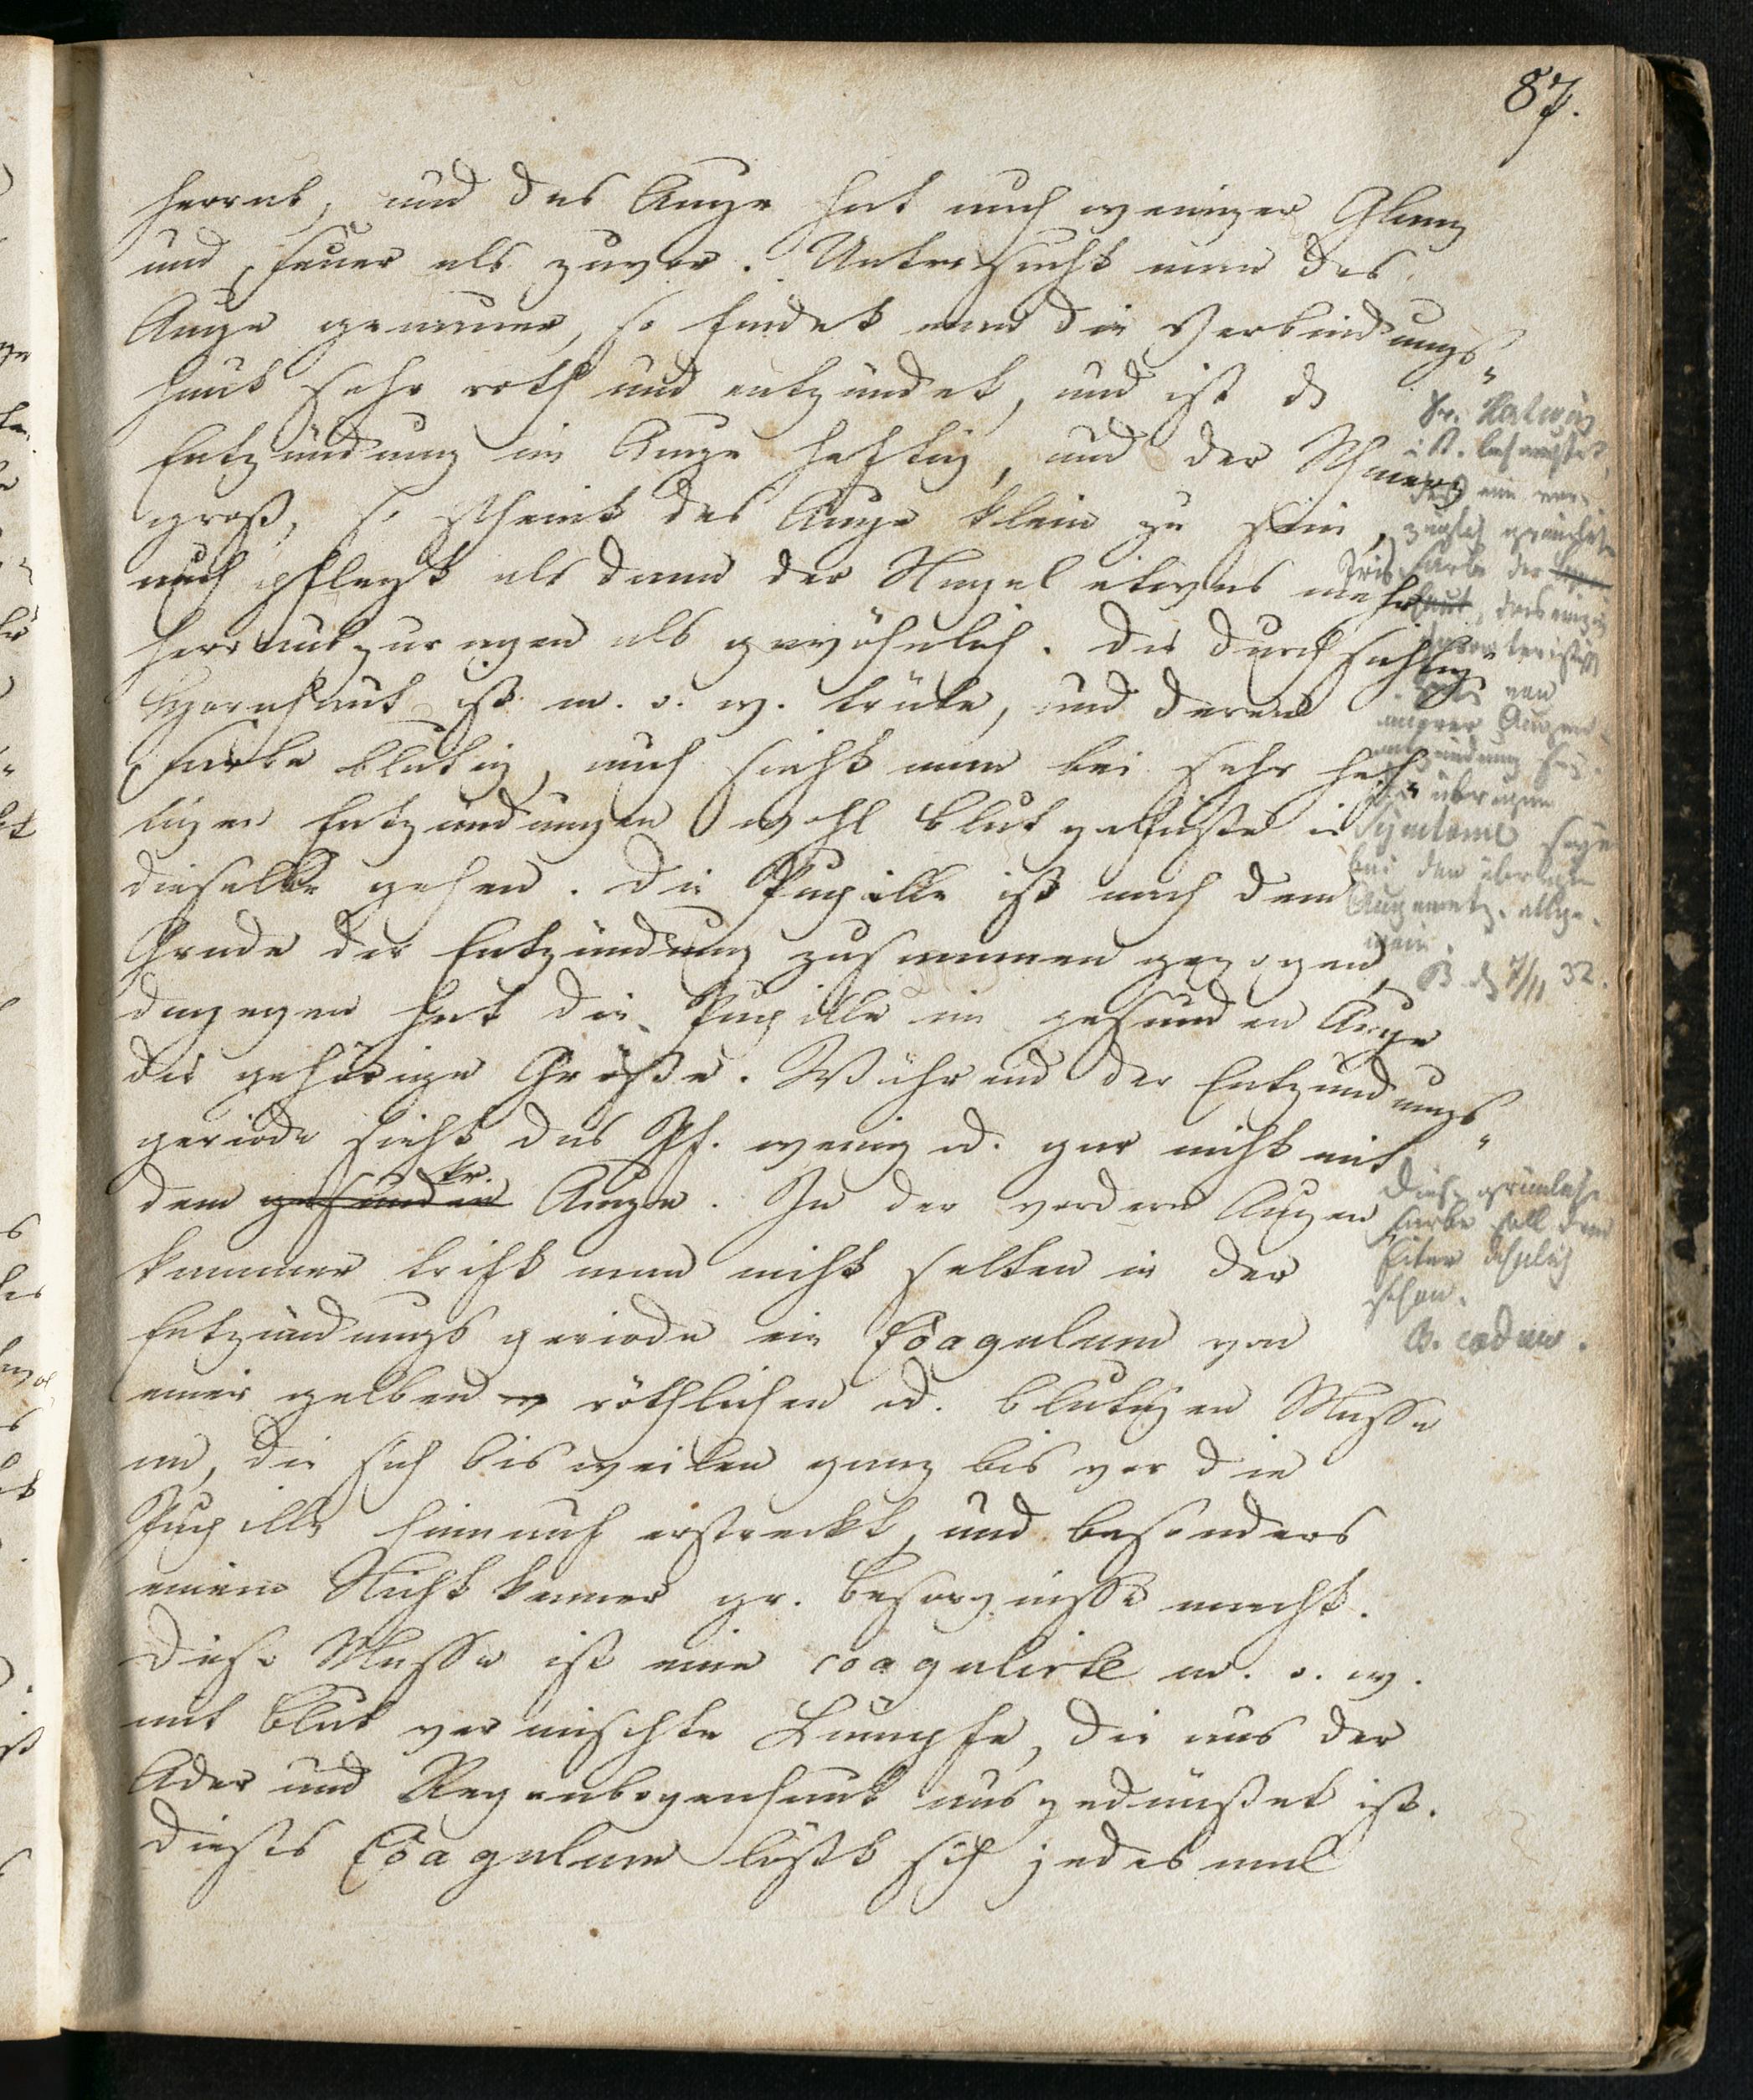 87.
herrab, und das Auge hat auch weniger Glanz
und Feuer als zuvor. Untersucht man das
Auge genauer, so findet man die Verbindungs„
haut sehr roth und entzündet, und ist d
Entzündung im Auge heftig, und der Schmerz
groß, so scheint das Auge klein zu sein,
auch pflegt als dann der Nagel etwas mehr
herrautzuragen als gewöhnlich. Die durchsichtige
Hornhaut ist m. o. w. trübe, und deren
Farbe blutig, auch sieht man bei sehr hef„
tigen Entzündungen wohl Blutgefäße in
dieselbe gehen. Die Pupille ist nach dem
Grade der Entzündung zusammen gezogen,
dagegen hat die Pupille im gesunden Auge
die gehörige Größe. Während der Entzündungs„
periode sieht das Pf. wenig od. gar nicht mit
dem gesunden kr. Auge. In der vordern Augen
kammer trift man nicht selten in der
Entzündungs periode ein Coagulum von
einer gelben röthlichen od. blutigen Masse
an, die sich bisweilen ganz bis vor die
Pupille hinauf erstreckt, und besonders
einem Nichtkenner gr. Besorgnisse macht.
Diese Masse ist eine coagulirte m. o. w.
mit Blut vermischte Lümpfe, die aus der
Ader und Regenbogenhaut ausgedünstet ist.
Dieses Coagulum lößt sich jedes mal
Hr.
ist. behauptet,
daß eine
grünliche
Iris Farbe der
haut, das einzig
charakteristische
von
andrer Augen
entzündung sey.
Die übrigen
Symtome seyn
bei den übrigen
Augenentz. allge-
mein.
B d 7/11 32.
Diese grünliche
Farbe soll dem
Eiter ähnlich
sehen.
B. eod